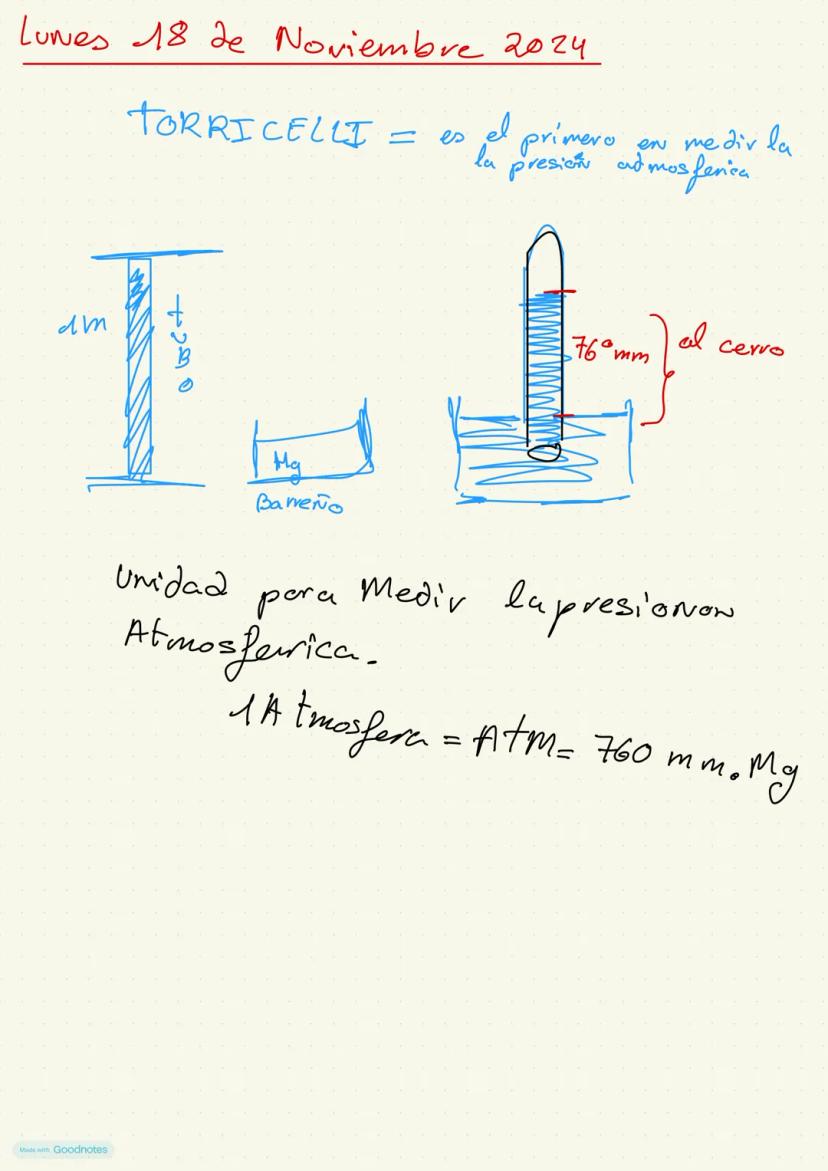 Lunes 18 de Noviembre 2024
TORRICELLI = es el primero en medir la
la presión atmosferica
1m
tuBo
760mm
al cerro
Mg
Barreño
Unidad para Medir la presionon
Atmosferica.
1 Atmosfera = AtM = 760 mm. Mg
Made with Goodnotes